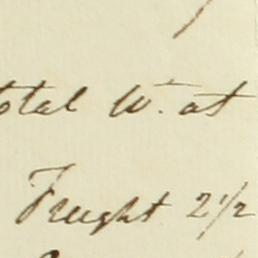 otal Wt. at
Freight 2 1/2